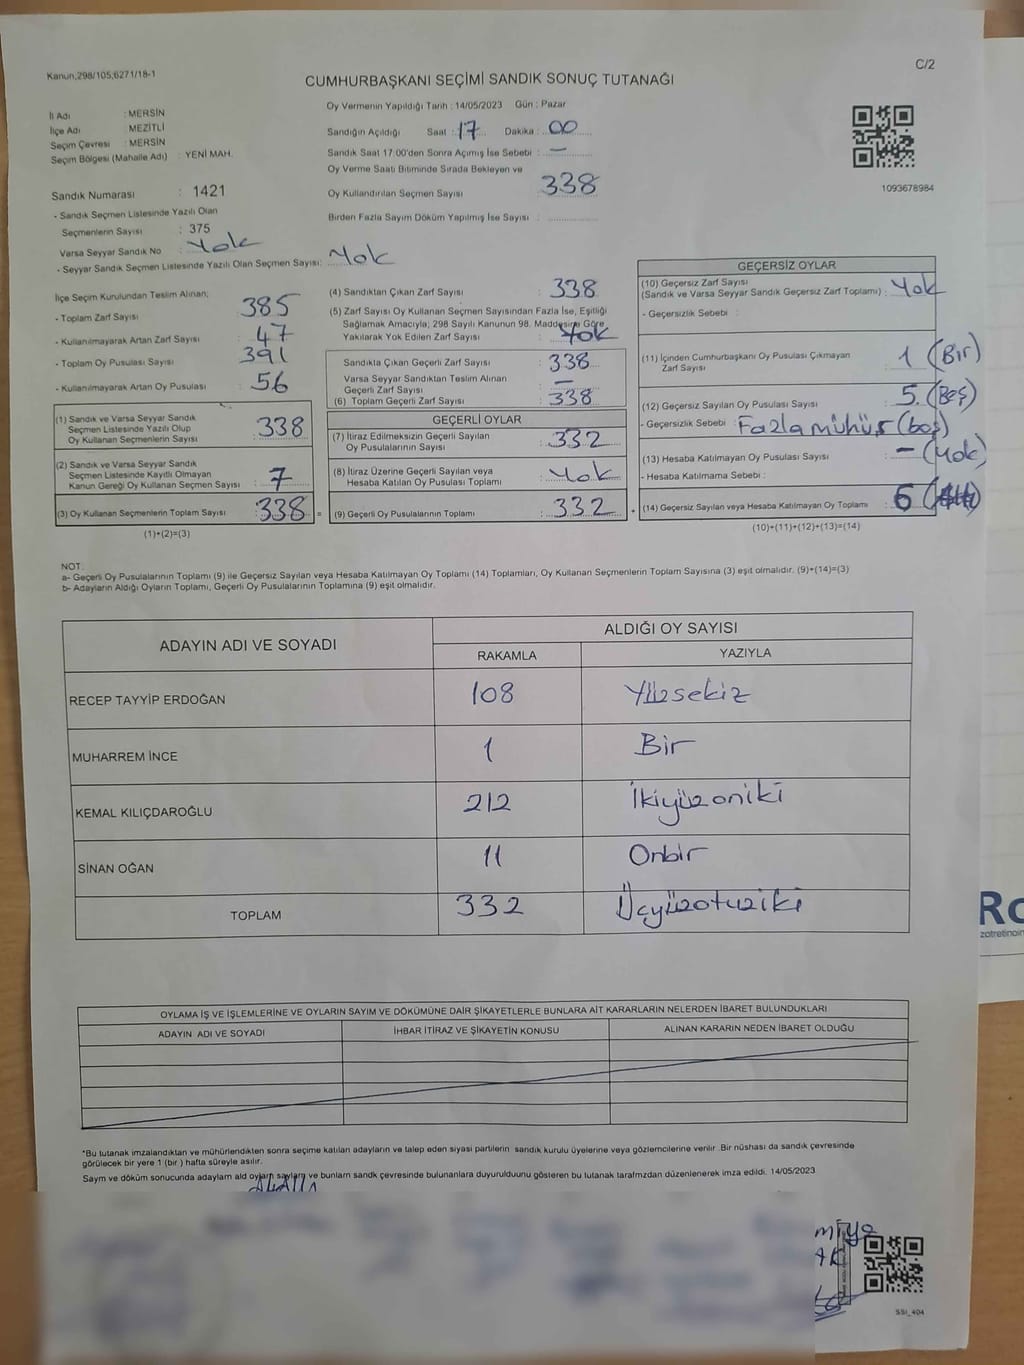 Kanun;298/105;6271/18-1
C/2
CUMHURBAŞKANI SEÇİMİ SANDIK SONUÇ TUTANAĞI
İl Adı : MERSİN
İlçe Adı : MEZİTLİ
Seçim Çevresi : MERSİN
Seçim Bölgesi (Mahalle Adı) : YENİ MAH.
Sandık Numarası : 1421
- Sandık Seçmen Listesinde Yazılı Olan
Seçmenlerin Sayısı : 375
Varsa Seyyar Sandık No : Yok
- Seyyar Sandık Seçmen Listesinde Yazılı Olan Seçmen Sayısı: Yok
Oy Vermenin Yapıldığı Tarih : 14/05/2023 Gün : Pazar
Sandığın Açıldığı Saat : 17 Dakika : 00
Sandık Saat 17:00'den Sonra Açımış İse Sebebi : –
Oy Verme Saati Bitiminde Sırada Bekleyen ve
Oy Kullandırılan Seçmen Sayısı 338
Birden Fazla Sayım Döküm Yapılmış İse Sayısı :
1093678984
İlçe Seçim Kurulundan Teslim Alınan;
- Toplam Zarf Sayısı : 385
- Kullanılmayarak Artan Zarf Sayısı : 47
- Toplam Oy Pusulası Sayısı : 391
- Kullanılmayarak Artan Oy Pusulası : 56
(1) Sandık ve Varsa Seyyar Sandık
Seçmen Listesinde Yazılı Olup
Oy Kullanan Seçmenlerin Sayısı : 338
(2) Sandık ve Varsa Seyyar Sandık
Seçmen Listesinde Kayıtlı Olmayan
Kanun Gereği Oy Kullanan Seçmen Sayısı : 7
(3) Oy Kullanan Seçmenlerin Toplam Sayısı : 338 =
(1)+(2)=(3)
(4) Sandıktan Çıkan Zarf Sayısı : 338
(5) Zarf Sayısı Oy Kullanan Seçmen Sayısından Fazla İse, Eşitliği
Sağlamak Amacıyla; 298 Sayılı Kanunun 98. Maddesine Göre
Yakılarak Yok Edilen Zarf Sayısı : Yok
Sandıkta Çıkan Geçerli Zarf Sayısı : 338
Varsa Seyyar Sandıktan Teslim Alınan
Geçerli Zarf Sayısı : –
(6) Toplam Geçerli Zarf Sayısı : 338
GEÇERLİ OYLAR
(7) İtiraz Edilmeksizin Geçerli Sayılan
Oy Pusulalarının Sayısı : 332
(8) İtiraz Üzerine Geçerli Sayılan veya
Hesaba Katılan Oy Pusulası Toplamı : Yok
(9) Geçerli Oy Pusulalarının Toplamı : 332 +
GEÇERSİZ OYLAR
(10) Geçersiz Zarf Sayısı
(Sandık ve Varsa Seyyar Sandık Geçersiz Zarf Toplamı) : Yok
- Geçersizlik Sebebi :
(11) İçinden Cumhurbaşkanı Oy Pusulası Çıkmayan
Zarf Sayısı : 1 (Bir)
(12) Geçersiz Sayılan Oy Pusulası Sayısı : 5 (Beş)
- Geçersizlik Sebebi : Fazla mühür (boş)
(13) Hesaba Katılmayan Oy Pusulası Sayısı : – (Yok)
- Hesaba Katılmama Sebebi :
(14) Geçersiz Sayılan veya Hesaba Katılmayan Oy Toplamı : 6
(10)+(11)+(12)+(13)=(14)
NOT:
a- Geçerli Oy Pusulalarının Toplamı (9) ile Geçersiz Sayılan veya Hesaba Katılmayan Oy Toplamı (14) Toplamları, Oy Kullanan Seçmenlerin Toplam Sayısına (3) eşit olmalıdır. (9)+(14)=(3)
b- Adayların Aldığı Oyların Toplamı, Geçerli Oy Pusulalarının Toplamına (9) eşit olmalıdır.
ADAYIN ADI VE SOYADI
ALDIĞI OY SAYISI
RAKAMLA YAZIYLA
RECEP TAYYİP ERDOĞAN 108 Yüzsekiz
MUHARREM İNCE 1 Bir
KEMAL KILIÇDAROĞLU 212 İkiyüzoniki
SİNAN OĞAN 11 Onbir
TOPLAM 332 Üçyüzotuziki
OYLAMA İŞ VE İŞLEMLERİNE VE OYLARIN SAYIM VE DÖKÜMÜNE DAİR ŞİKAYETLERLE BUNLARA AİT KARARLARIN NELERDEN İBARET BULUNDUKLARI
ADAYIN ADI VE SOYADI İHBAR İTİRAZ VE ŞİKAYETİN KONUSU ALINAN KARARIN NEDEN İBARET OLDUĞU
*Bu tutanak imzalandıktan ve mühürlendikten sonra seçime katılan adayların ve talep eden siyasi partilerin sandık kurulu üyelerine veya gözlemcilerine verilir. Bir nüshası da sandık çevresinde
görülecek bir yere 1 (bir ) hafta süreyle asılır.
Saym ve döküm sonucunda adaylam ald oylam saylam ve bunlam sandk çevresinde bulunanlara duyurulduunu gösteren bu tutanak tarafmzdan düzenlenerek imza edildi. 14/05/2023
SSI_404